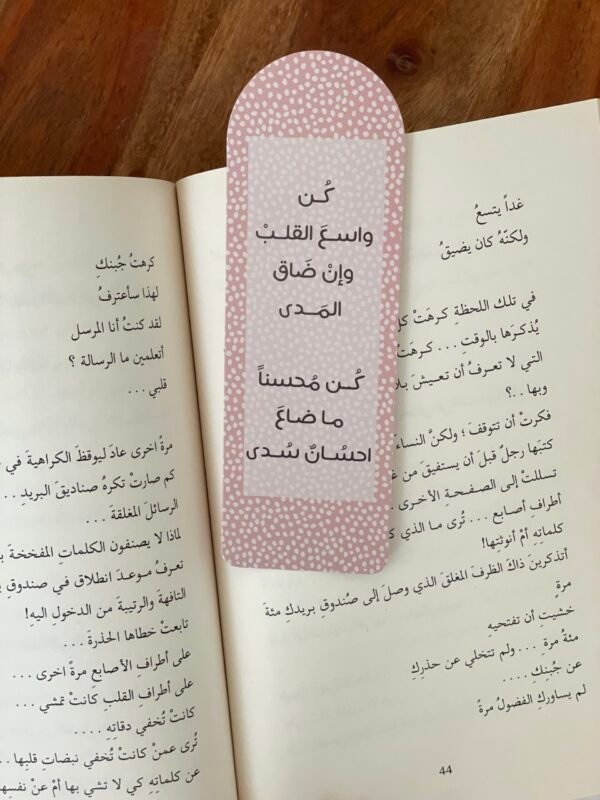 كُـن
واسـعَ القلـبْ
وإنْ ضَاق
المَـدى
كُـن مُحسناً
مـا ضاعَ
احسُـانٌ سُـدى
غداً يتسعُ
ولكنّهُ كان يضيقُ
في تلك اللحظةِ كرهَتْ
يُذكرَها بالوقتِ ... كرهَتْ
التي لا تعرفُ أن تعيشَ
وبها ..؟
فكرتْ أن تتوقفَ ؛ ولكنَّ
كتبَها رجلٌ قبلَ أن يستفيقَ من
تسللتْ إلى الصفحةِ الأخرى
أطراف أصابع ... تُرى ما الذي
كلماتِهِ أمْ أنوثتها!
أتذكرينَ ذاكَ الظرفَ المغلقَ الذي وصلَ إلى صُندوقِ بريدكِ مئةَ
مرةٍ
خشيتِ أن تفتحيهِ
مئةُ مرةٍ ... ولم تتخلي عن حذركِ
عن جُبنكِ ....
لم يساوركِ الفضولُ مرةً
44
كرهتُ جُبنكِ
لهذا سأعترفُ
لقد كنتُ أنا المرسل
أتعلمين ما الرسالة ؟
قلبي ...
مرةً اخرى عادَ ليوقظَ الكراهيةَ في
كم صارتْ تكرهُ صناديقَ البريدِ ...
الرسائلَ المغلقةَ ...
لماذا لا يصنفون الكلماتِ المفخخةَ
تعرفُ موعدَ انطلاقٍ في صندوقِ
التافهةَ والرتيبةَ من الدخولِ اليهِ!
تابعتْ خطاها الحذرةَ ...
على أطرافِ الأصابعِ مرةً اخرى ...
على أطرافِ القلبِ كَانتْ تمشي ...
كانتْ تُخفي دقاتِهِ ....
تُرى عمنْ كانتْ تُخفي نبضاتِ قلبِها ..
عن كلماتِهِ كي لا تشي بها أمْ عنْ